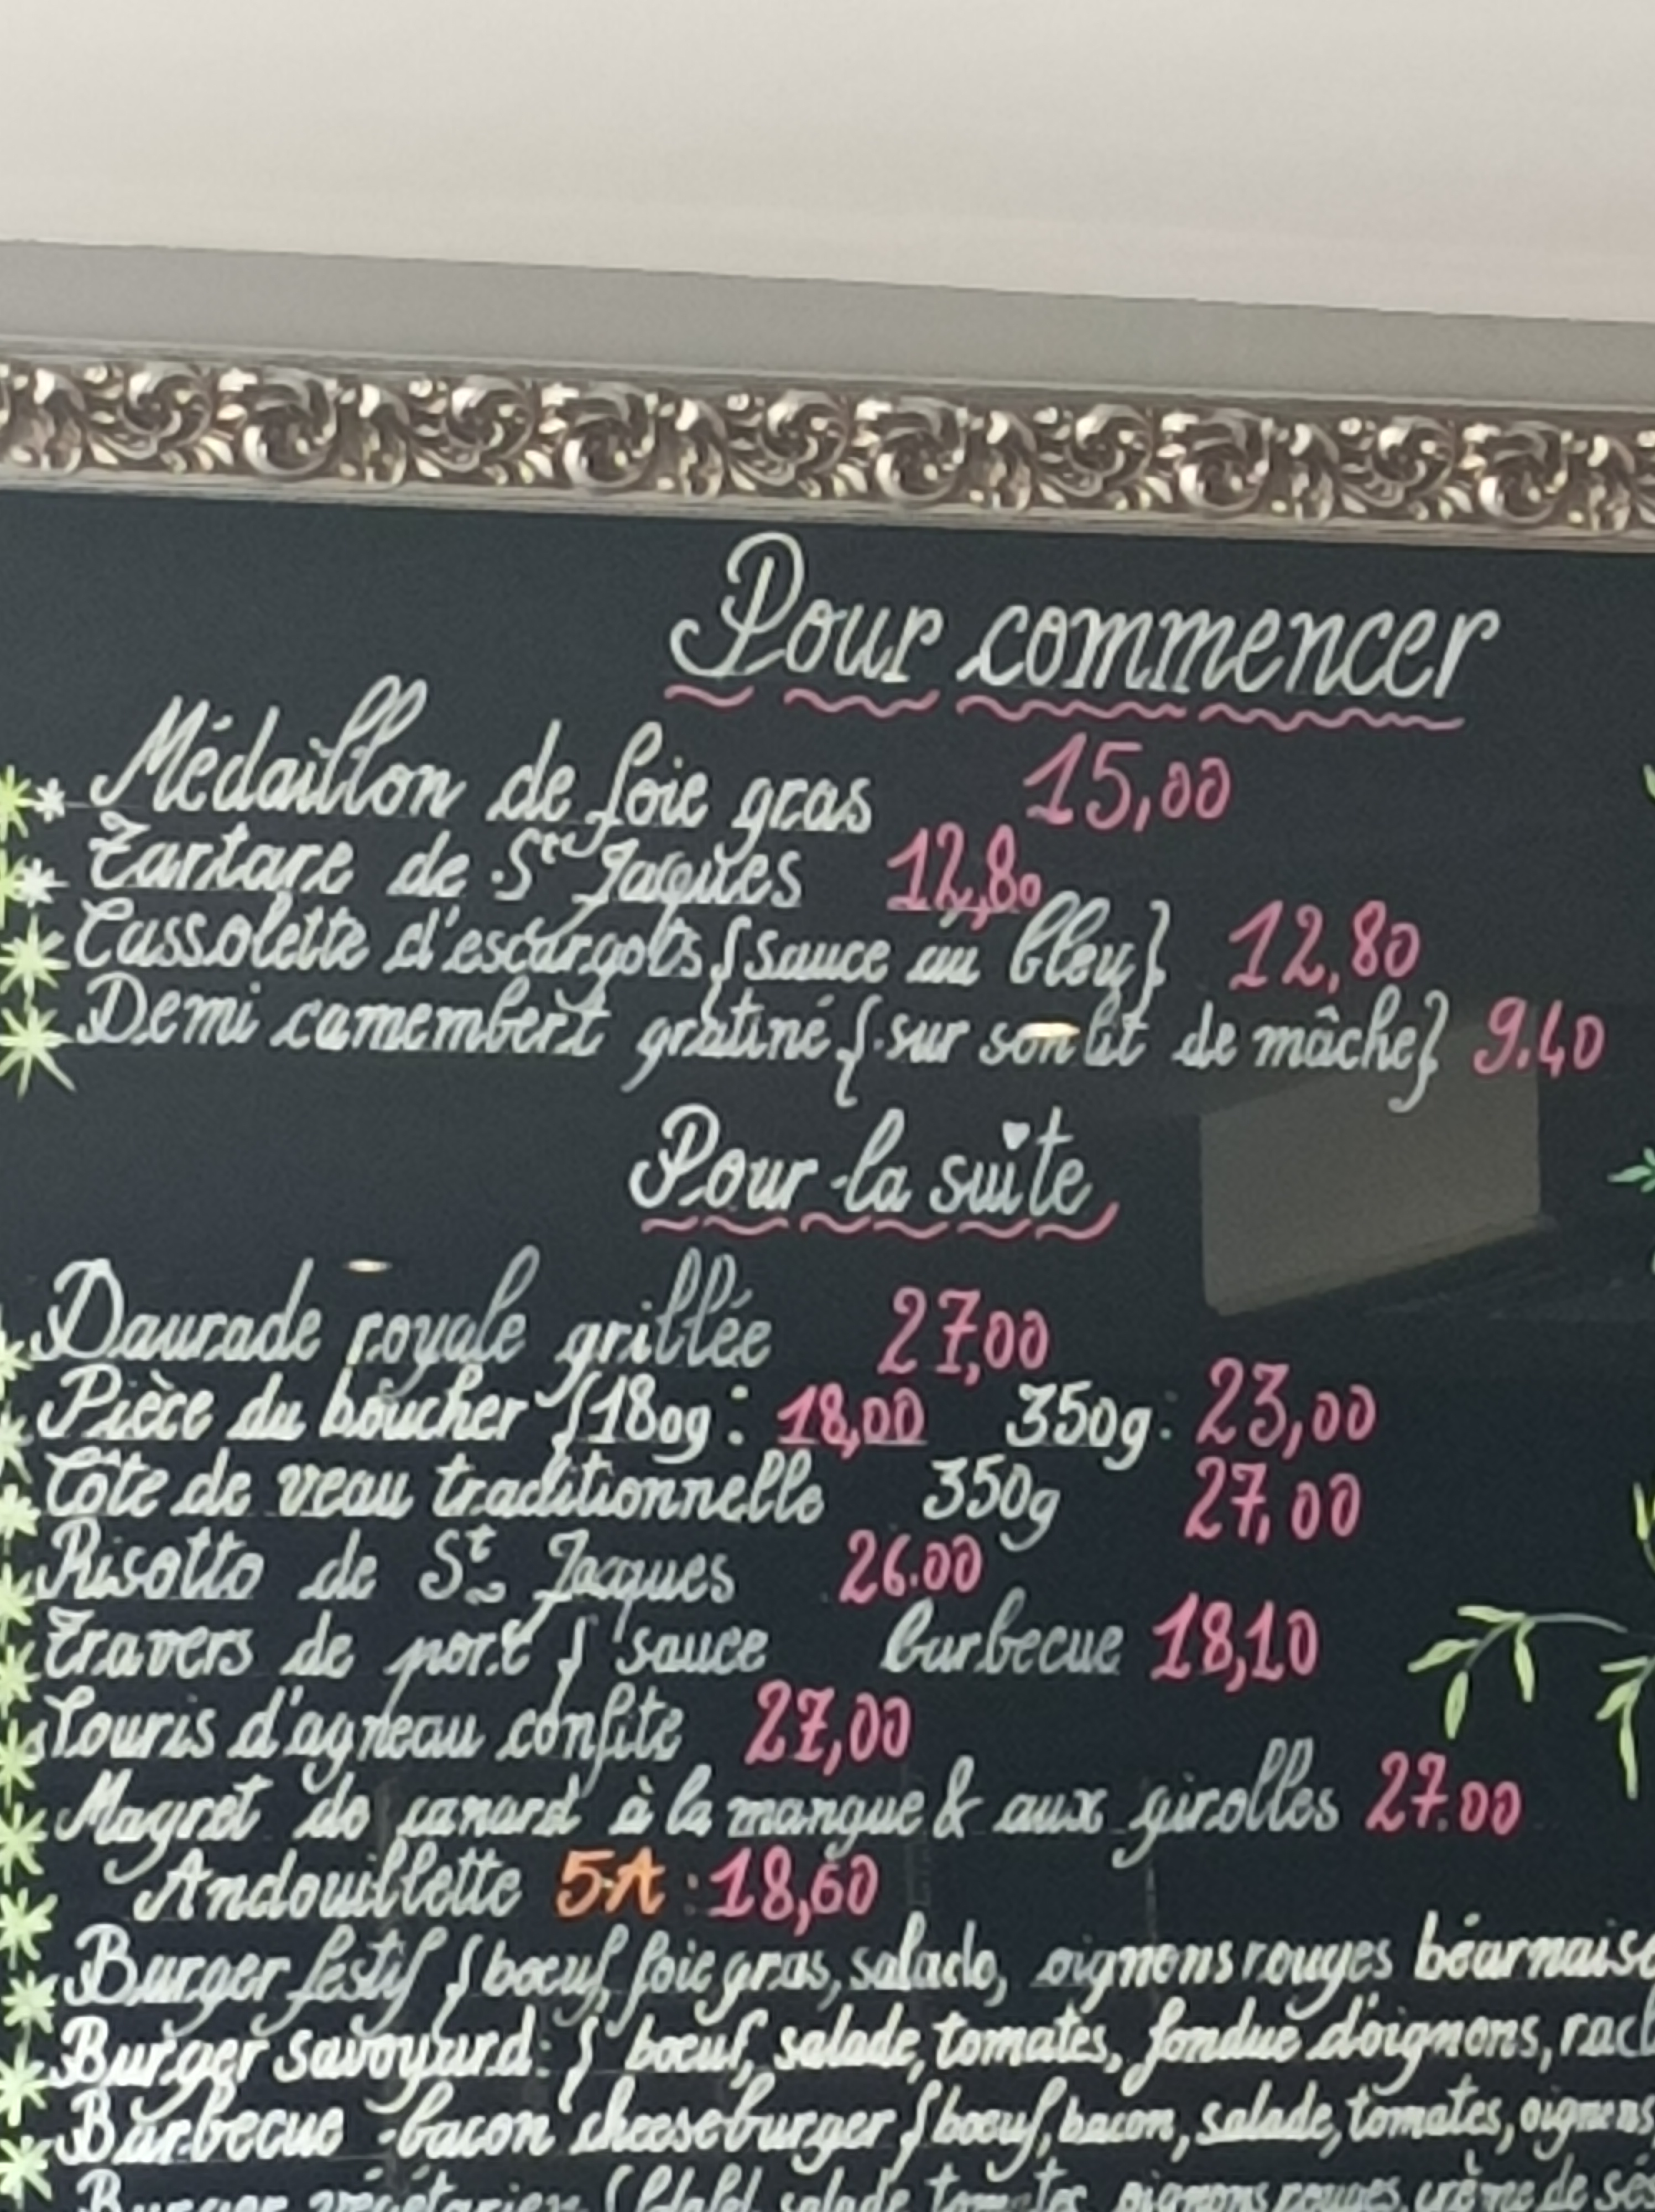 Pour commencer
Médaillon de foie gras 15,00
Tartare de Ste Jaques 12,80
Cassolette d'escargots {sauce au bleu} 12,80
Demi camembert gratiné {sur son lit de mâche} 9.40
Pour la suite
Daurade royale grillée 27,00
Pièce du boucher {180g : 18,00 350g : 23,00
Côte de veau traditionnelle 350g 27,00
Risotto de St Jacques 26.00
Travers de porc { sauce barbecue 18,10
Souris d'agneau confite 27,00
Magret de canard à la mangue & aux girolles 27.00
Andouillette 5A : 18,60
Burger festif { bœuf, foie gras, salade, oignons rouges béarnaise
Burger savoyard : { bœuf, salade, tomates, fondue d'oignons, racl
Barbecue bacon cheeseburger { bœuf, bacon, salade, tomates, oignons,
Burger végétarien { salade tomates oignons rouges, crème de sés